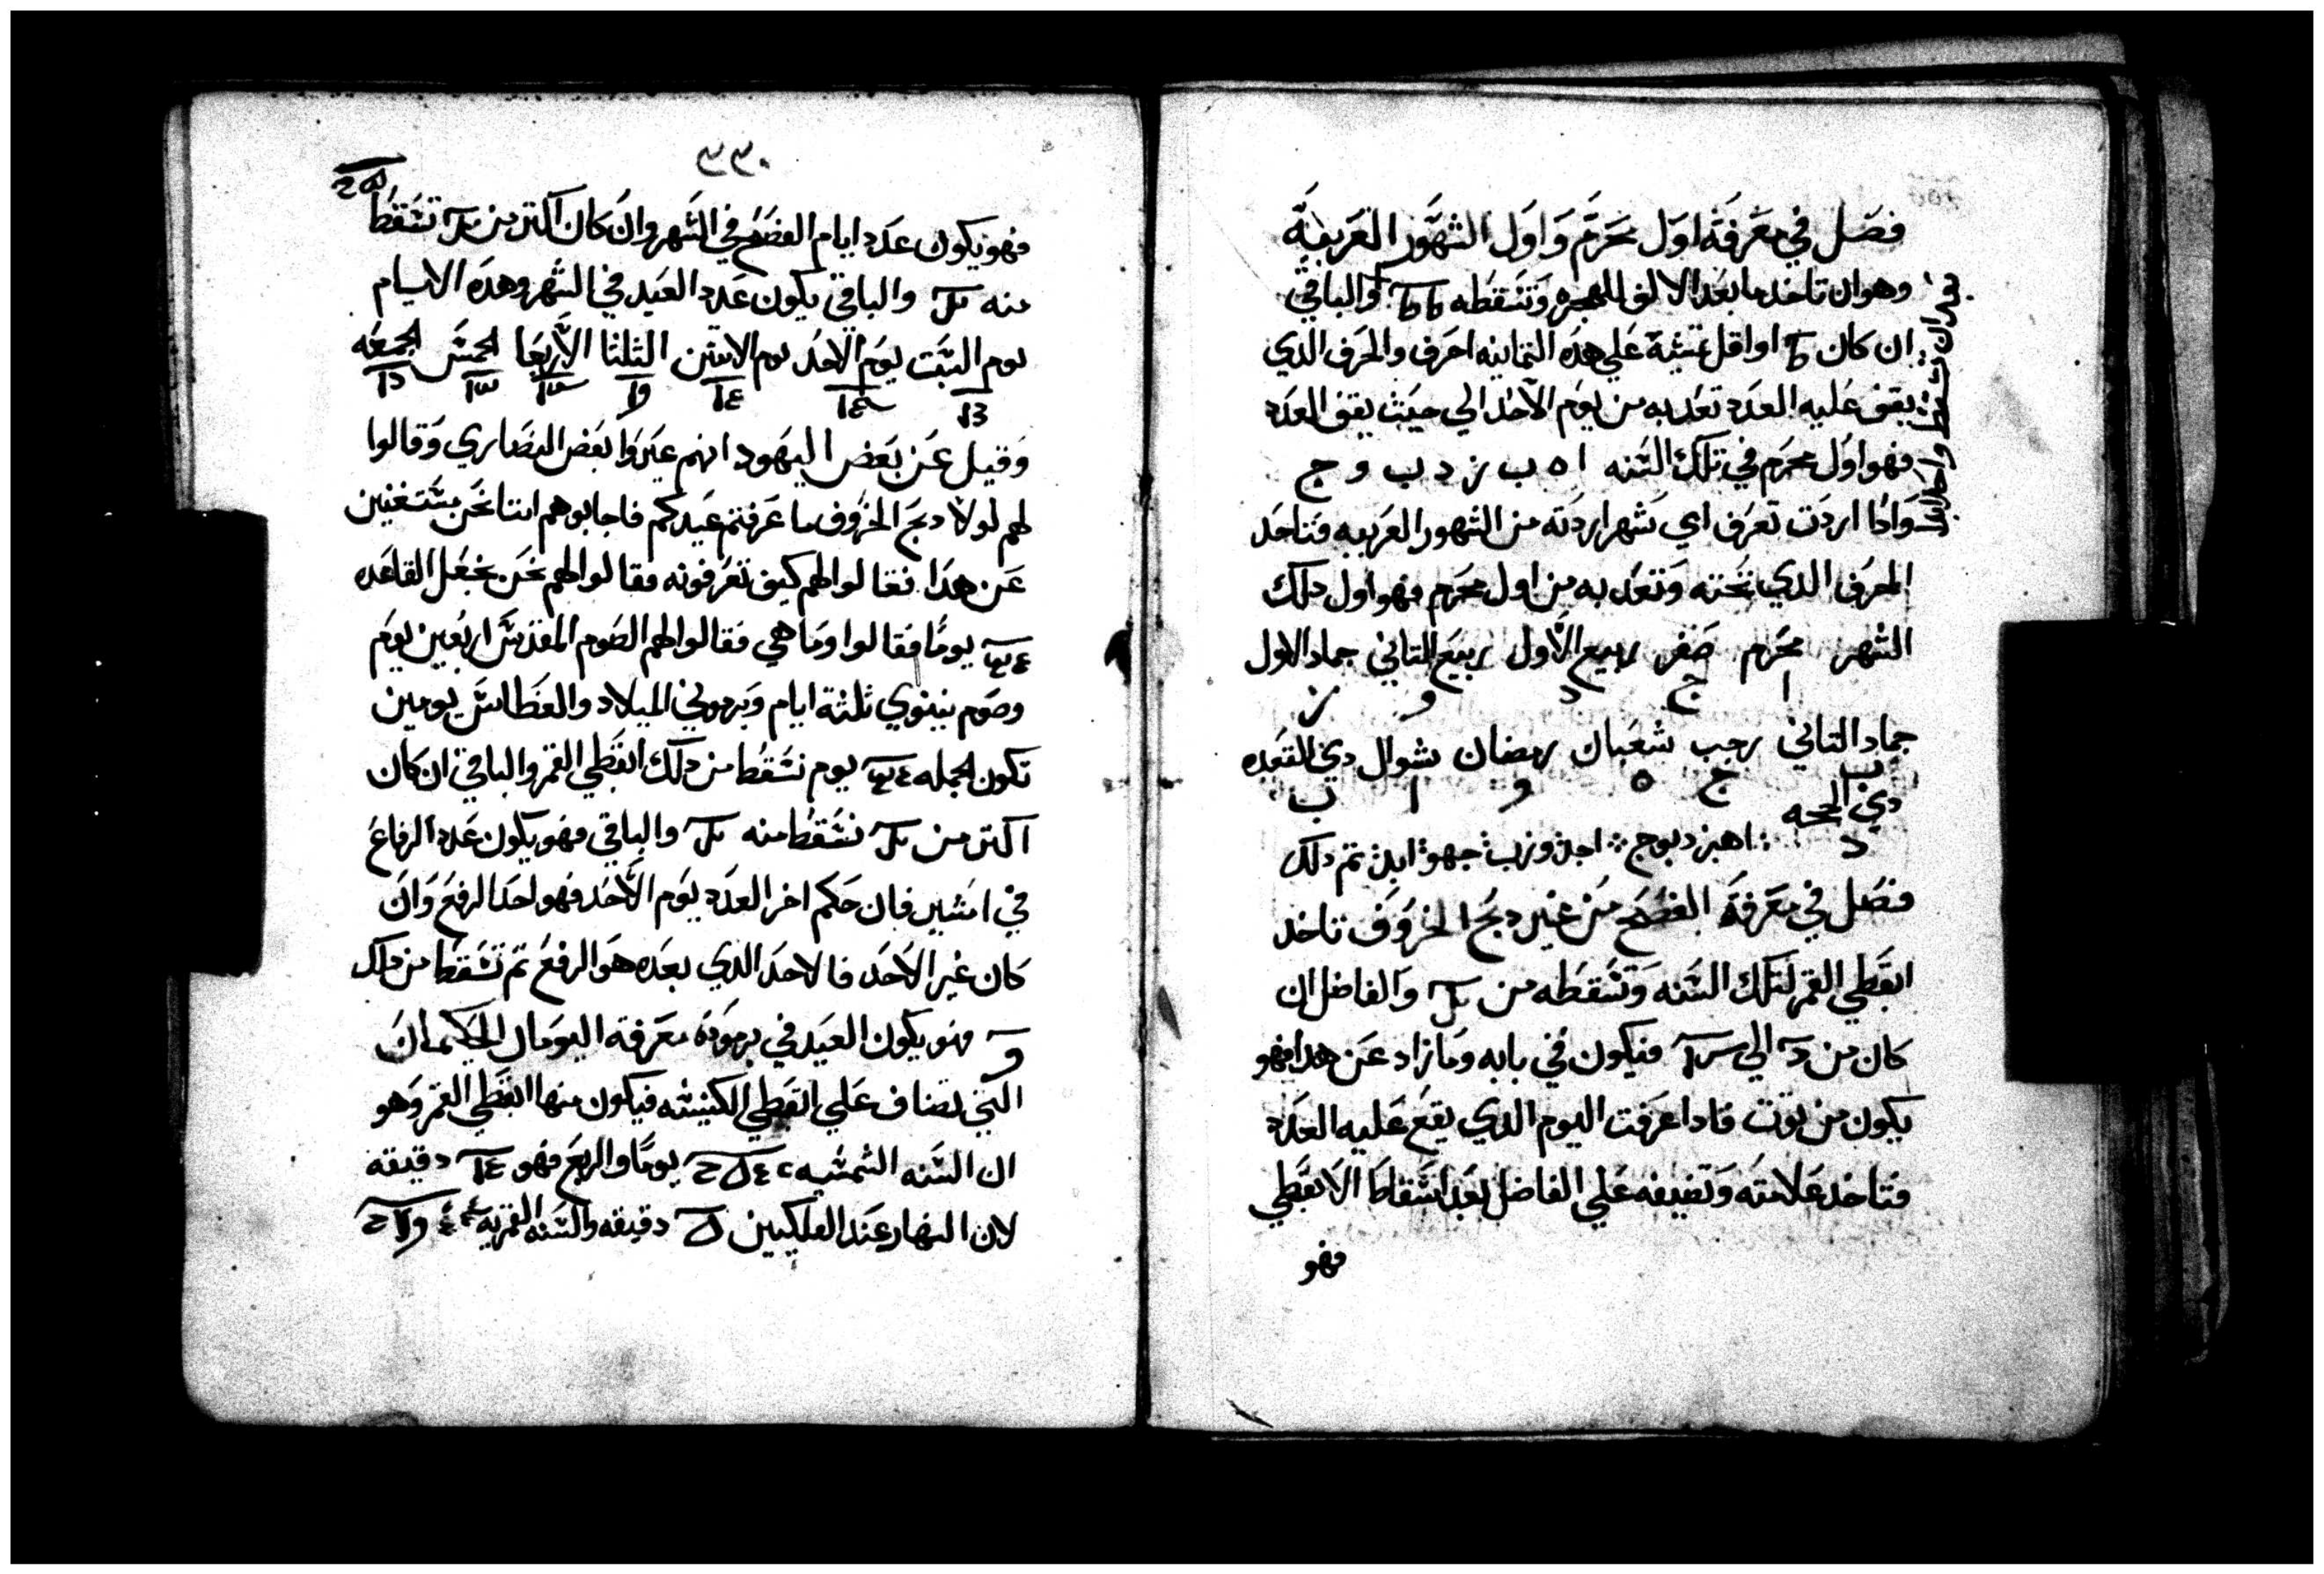 فصل في معرفة اول محرم واول الشهور العربية
وهو ان تاخد ما بعد الالف للهجره وتسقطه والباقي
ان كان او اقل تمشية علي هده التمانيه احرف والحرف الدي
يقف عليه العدد تعد به من يوم الاحد الي حيت يقف العدد
فهو اول محرم في تلك السنه ا ه ب ز د ب و ج
وادا اردت تعرف اي شهر اردته من الشهور العربيه فتاخد
الحرف الدي تحته وتعد به من اول محرم فهو اول دلك
الشهر محرم صفر ربيع الاول ربيع التاني جماد الاول
ا ج د و ز
جماد التاني رجب شعبان رمضان شوال دي القعده
ب ج ه و ا ب
دي الحجه
د
اهبزدبوج اجد وزب جهو ابد تم دلك
فصل في معرفة الفصح من غير دبح الخروف تاخد
ابقطي القمر لتلك السنه وتسقطه من والفاضل ان
كان من الي فيكون في بابه وما زاد عن هدا فهو
يكون من توت فادا عرفت اليوم الدي يقع عليه العدد
فتاخد علامته وتضيفه علي الفاضل بعد اسقاط الابقطي
فهو
٢٣٠
فهو يكون عدد ايام الفصح في الشهر وان كان اكتر من تسقط
منه والباقي يكون عدد العيد في الشهر وهده الايام
يوم السبت يوم الاحد يوم الاتنين التلتا الاربعا الخميس الجمعه
وقيل عن بعض اليهود انهم عيروا بعض النصاري وقالوا
لهم لولا دبح الخروف ما عرفتم عيدكم فاجابوهم اننا نحن مستغنين
عن هدا فقالوا لهم كيف تعرفونه فقالوا لهم نحن نجعل القاعده
يومًا فقالوا وما هي فقالوا لهم الصوم المقدس اربعين يوم
وصوم نينوي تلتة ايام وبرموني الميلاد والغطاس يومين
تكون الجمله يوم نسقط من دلك ابقطي القمر والباقي ان كان
اكتر من نسقط منه والباقي فهو يكون عدد الرفاع
في امشير فان حكم اخر العدد يوم الاحد فهو احد الرفع وان
كان غير الاحد فالاحد الدي بعده هو الرفع تم تسقط من دلك
و فهو يكون العيد في برموده معرفة اليوم ال
التي تضاف علي ابقطي الكبيسه فيكون منها ابقطي القمر وهو
ان السنه الشمسيه يومًا والربع فهو دقيقه
لان النهار عند الفلكيين دقيقه والسنه القمريه